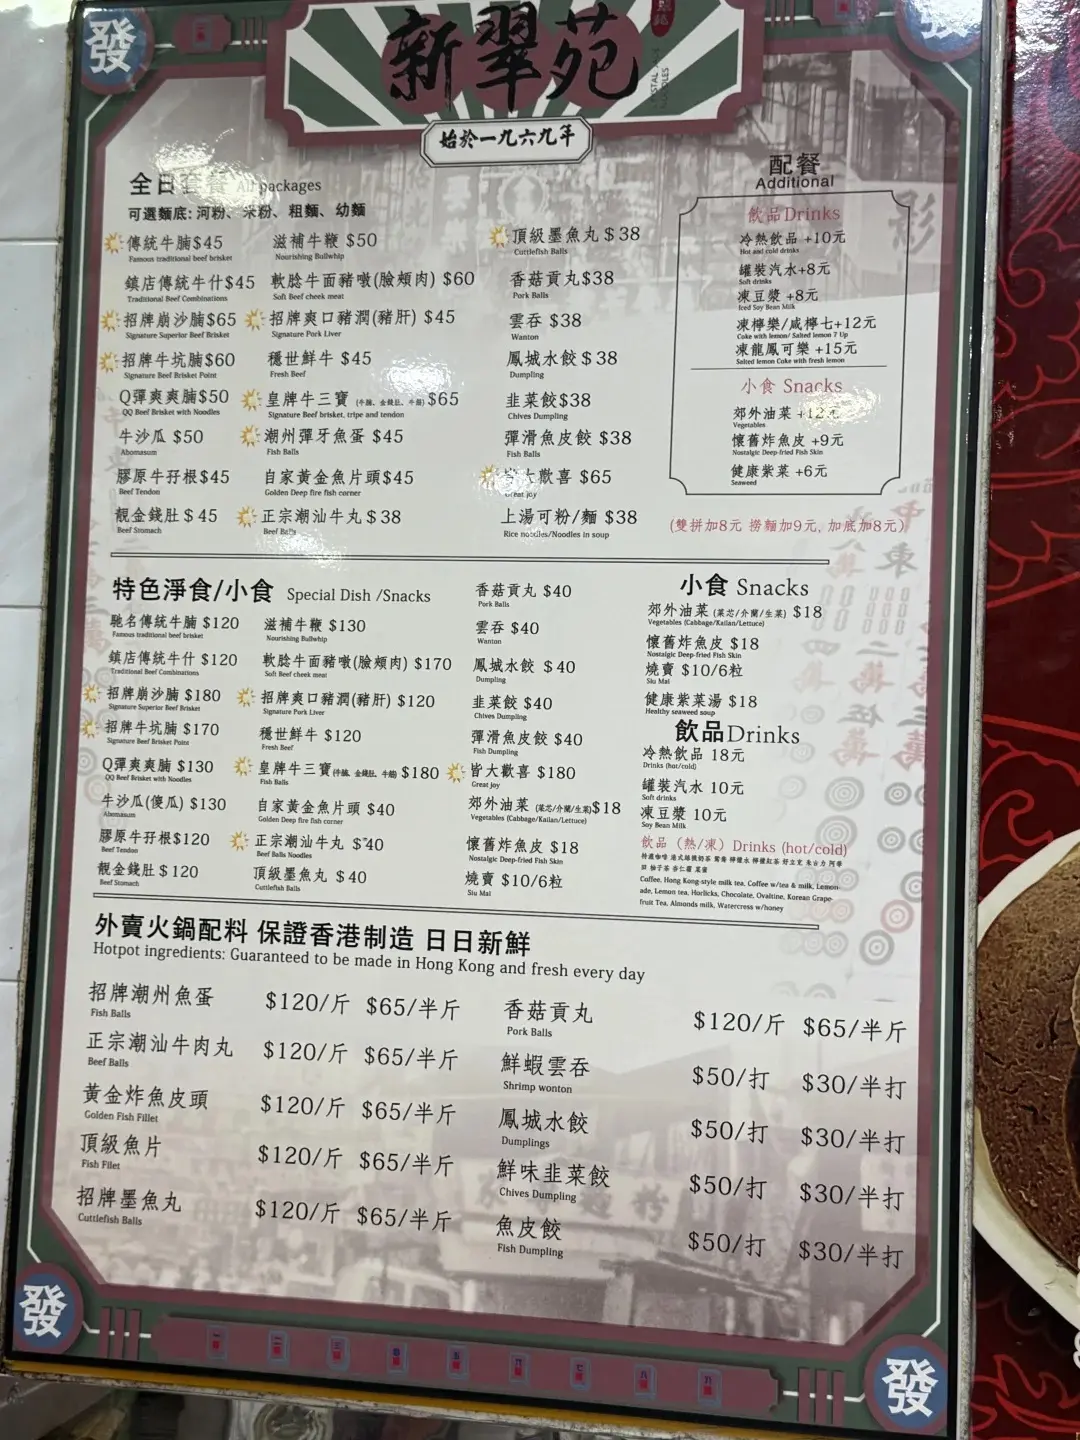 新翠苑
始於一九六九年
全日套餐 All packages
可選麵底: 河粉、米粉、粗麵、幼麵
傳統牛腩$45
Famous traditional beef brisket
鎮店傳統牛什$45
Traditional Beef Combinations
招牌崩沙腩$65
Signature Superior Beef Brisket
招牌牛坑腩$60
Signature Beef Brisket Point
Q彈爽爽腩$50
QQ Beef Brisket with Noodles
牛沙瓜 $50
Abomasum
膠原牛孖根$45
Beef Tendon
靚金錢肚 $45
Beef Stomach
滋補牛鞭 $50
Nourishing Bullwhip
軟腍牛面豬墩(臉頰肉) $60
Soft Beef cheek meat
招牌爽口豬潤(豬肝) $45
Signature Pork Liver
穩世鮮牛 $45
Fresh Beef
皇牌牛三寶 (牛腩、金錢肚、牛筋) $65
Signature Beef brisket, tripe and tendon
潮州彈牙魚蛋 $45
Fish Balls
自家黃金魚片頭$45
Golden Deep fire fish corner
正宗潮汕牛丸 $38
Beef Balls
頂級墨魚丸 $38
Cuttlefish Balls
香菇貢丸$38
Pork Balls
雲吞 $38
Wanton
鳳城水餃 $38
Dumpling
韭菜餃$38
Chives Dumpling
彈滑魚皮餃 $38
Fish Dumpling
皆大歡喜 $65
Great joy
上湯可粉/麵 $38
Rice noodles/Noodles in soup
配餐
Additional
飲品Drinks
冷熱飲品 +10元
Hot and cold drinks
罐裝汽水+8元
Soft drinks
凍豆漿 +8元
Iced Soy Bean Milk
凍檸樂/咸檸七+12元
Coke with lemon/ Salted lemon 7 Up
凍龍鳳可樂 +15元
Salted lemon Coke with fresh lemon
小食 Snacks
郊外油菜 +12元
Vegetables
懷舊炸魚皮 +9元
Nostalgic Deep-fried Fish Skin
健康紫菜 +6元
Seaweed
(雙拼加8元 撈麵加9元, 加底加8元)
特色淨食/小食 Special Dish /Snacks
馳名傳統牛腩 $120
Famous traditional beef brisket
鎮店傳統牛什 $120
Traditional Beef Combinations
招牌崩沙腩 $180
Signature Superior Beef Brisket
招牌牛坑腩 $170
Signature Beef Brisket Point
Q彈爽爽腩 $130
QQ Beef Brisket with Noodles
牛沙瓜(傻瓜) $130
Abomasum
膠原牛孖根$120
Beef Tendon
靚金錢肚 $120
Beef Stomach
滋補牛鞭 $130
Nourishing Bullwhip
軟腍牛面豬墩(臉頰肉) $170
Soft Beef cheek meat
招牌爽口豬潤(豬肝) $120
Signature Pork Liver
穩世鮮牛 $120
Fresh Beef
皇牌牛三寶(牛腩、金錢肚、牛筋) $180
Fish Balls
自家黃金魚片頭 $40
Golden Deep fire fish corner
正宗潮汕牛丸 $40
Beef Balls Noodles
頂級墨魚丸 $40
Cuttlefish Balls
香菇貢丸 $40
Pork Balls
雲吞 $40
Wanton
鳳城水餃 $40
Dumpling
韭菜餃 $40
Chives Dumpling
彈滑魚皮餃 $40
Fish Dumpling
皆大歡喜 $180
Great joy
郊外油菜 (菜芯/介蘭/生菜)$18
Vegetables (Cabbage/Kailan/Lettuce)
懷舊炸魚皮 $18
Nostalgic Deep-fried Fish Skin
燒賣 $10/6粒
Siu Mai
小食 Snacks
郊外油菜 (菜芯/介蘭/生菜) $18
Vegetables (Cabbage/Kailan/Lettuce)
懷舊炸魚皮 $18
Nostalgic Deep-fried Fish Skin
燒賣 $10/6粒
Siu Mai
健康紫菜湯 $18
Healthy seaweed soup
飲品Drinks
冷熱飲品 18元
Drinks (hot/cold)
罐裝汽水 10元
Soft drinks
凍豆漿 10元
Soy Bean Milk
飲品 (熱/凍) Drinks (hot/cold)
特濃咖啡 港式絲襪奶茶 鴛鴦 檸檬水 檸檬紅茶 好立克 朱古力 阿華
田 柚子茶 杏仁霜 菜蜜
Coffee, Hong Kong-style milk tea, Coffee w/tea & milk, Lemon-
ade, Lemon tea, Horlicks, Chocolate, Ovaltine, Korean Grape-
fruit Tea, Almonds milk, Watercress w/honey
外賣火鍋配料 保證香港制造 日日新鮮
Hotpot ingredients: Guaranteed to be made in Hong Kong and fresh every day
招牌潮州魚蛋 $120/斤 $65/半斤
Fish Balls
正宗潮汕牛肉丸 $120/斤 $65/半斤
Beef Balls
黃金炸魚皮頭 $120/斤 $65/半斤
Golden Fish Fillet
頂級魚片 $120/斤 $65/半斤
Fish Filet
招牌墨魚丸 $120/斤 $65/半斤
Cuttlefish Balls
香菇貢丸 $120/斤 $65/半斤
Pork Balls
鮮蝦雲吞 $50/打 $30/半打
Shrimp wonton
鳳城水餃 $50/打 $30/半打
Dumplings
鮮味韭菜餃 $50/打 $30/半打
Chives Dumpling
魚皮餃 $50/打 $30/半打
Fish Dumpling
發
發
發